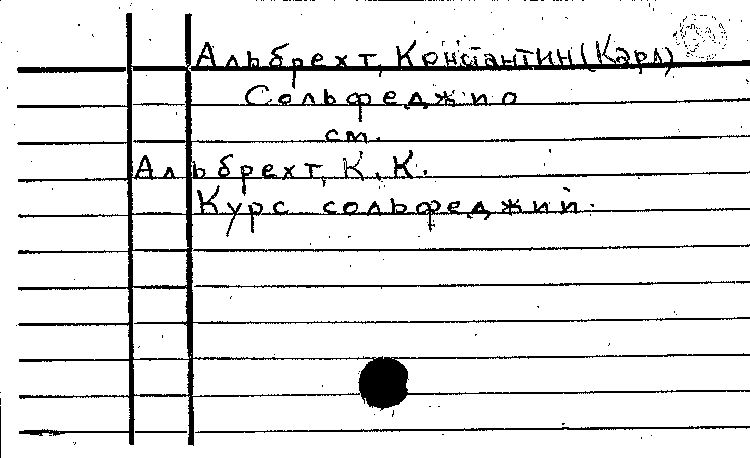 Альбрехт, Константин (Карл)
Сольфеджио
см.
Альбрехт, К. К.
Курс сольфеджий.